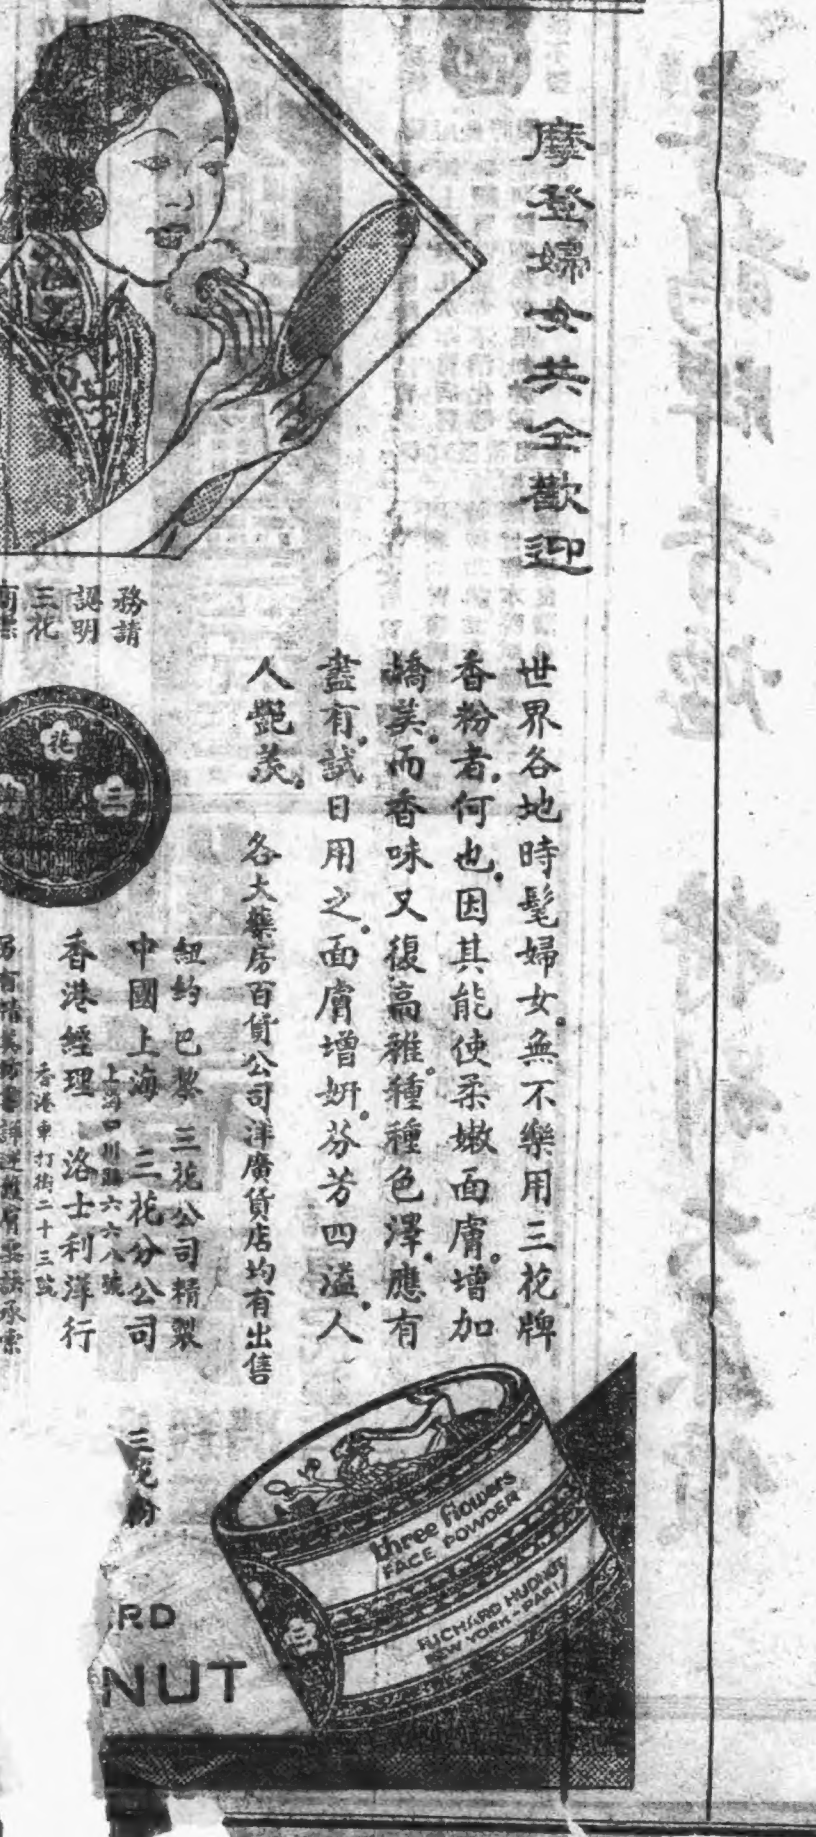 摩登婦女共仝歡迎
世界各地時髦婦女。無不樂用三花牌
香粉者。何也。因其能使柔嫩面膚。增加
嬌美。而香味又復高雅。種種色澤。應有
盡有。試日用之。面膚增妍。芬芳四溢。人
人艷羨。
各大藥房百貨公司洋廣貨店均有出售
紐約巴黎 三花公司精製
中國上海 三花分公司
六六八號
香港經理 洛士利洋行
香港車打街二十三號
務請
認明
三花
花
三
三花粉
three flowers
FACE POWDER
RICHARD HUDNUT
NEW YORK - PARIS
RD
NUT